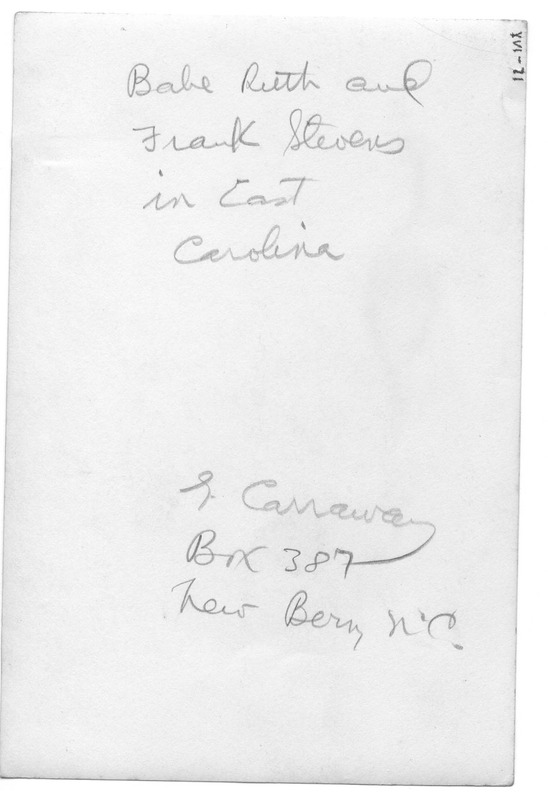 XVI-21
Babe Ruth and
Frank Stevens
in East
Carolina
G. Carraway
Box 387
New Bern, N.C.